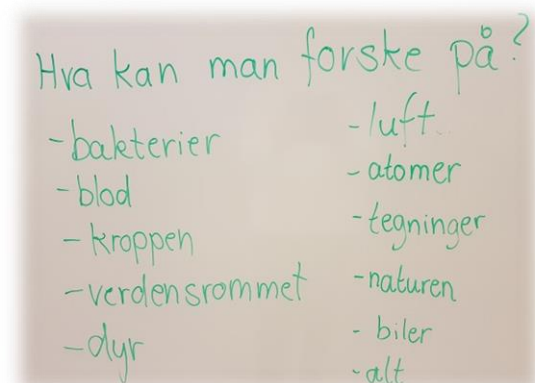 Hva kan man forske på?
-bakterier
-blod
-kroppen
-verdensrommet
-dyr
-luft
-atomer
-tegninger
-naturen
- biler
-alt